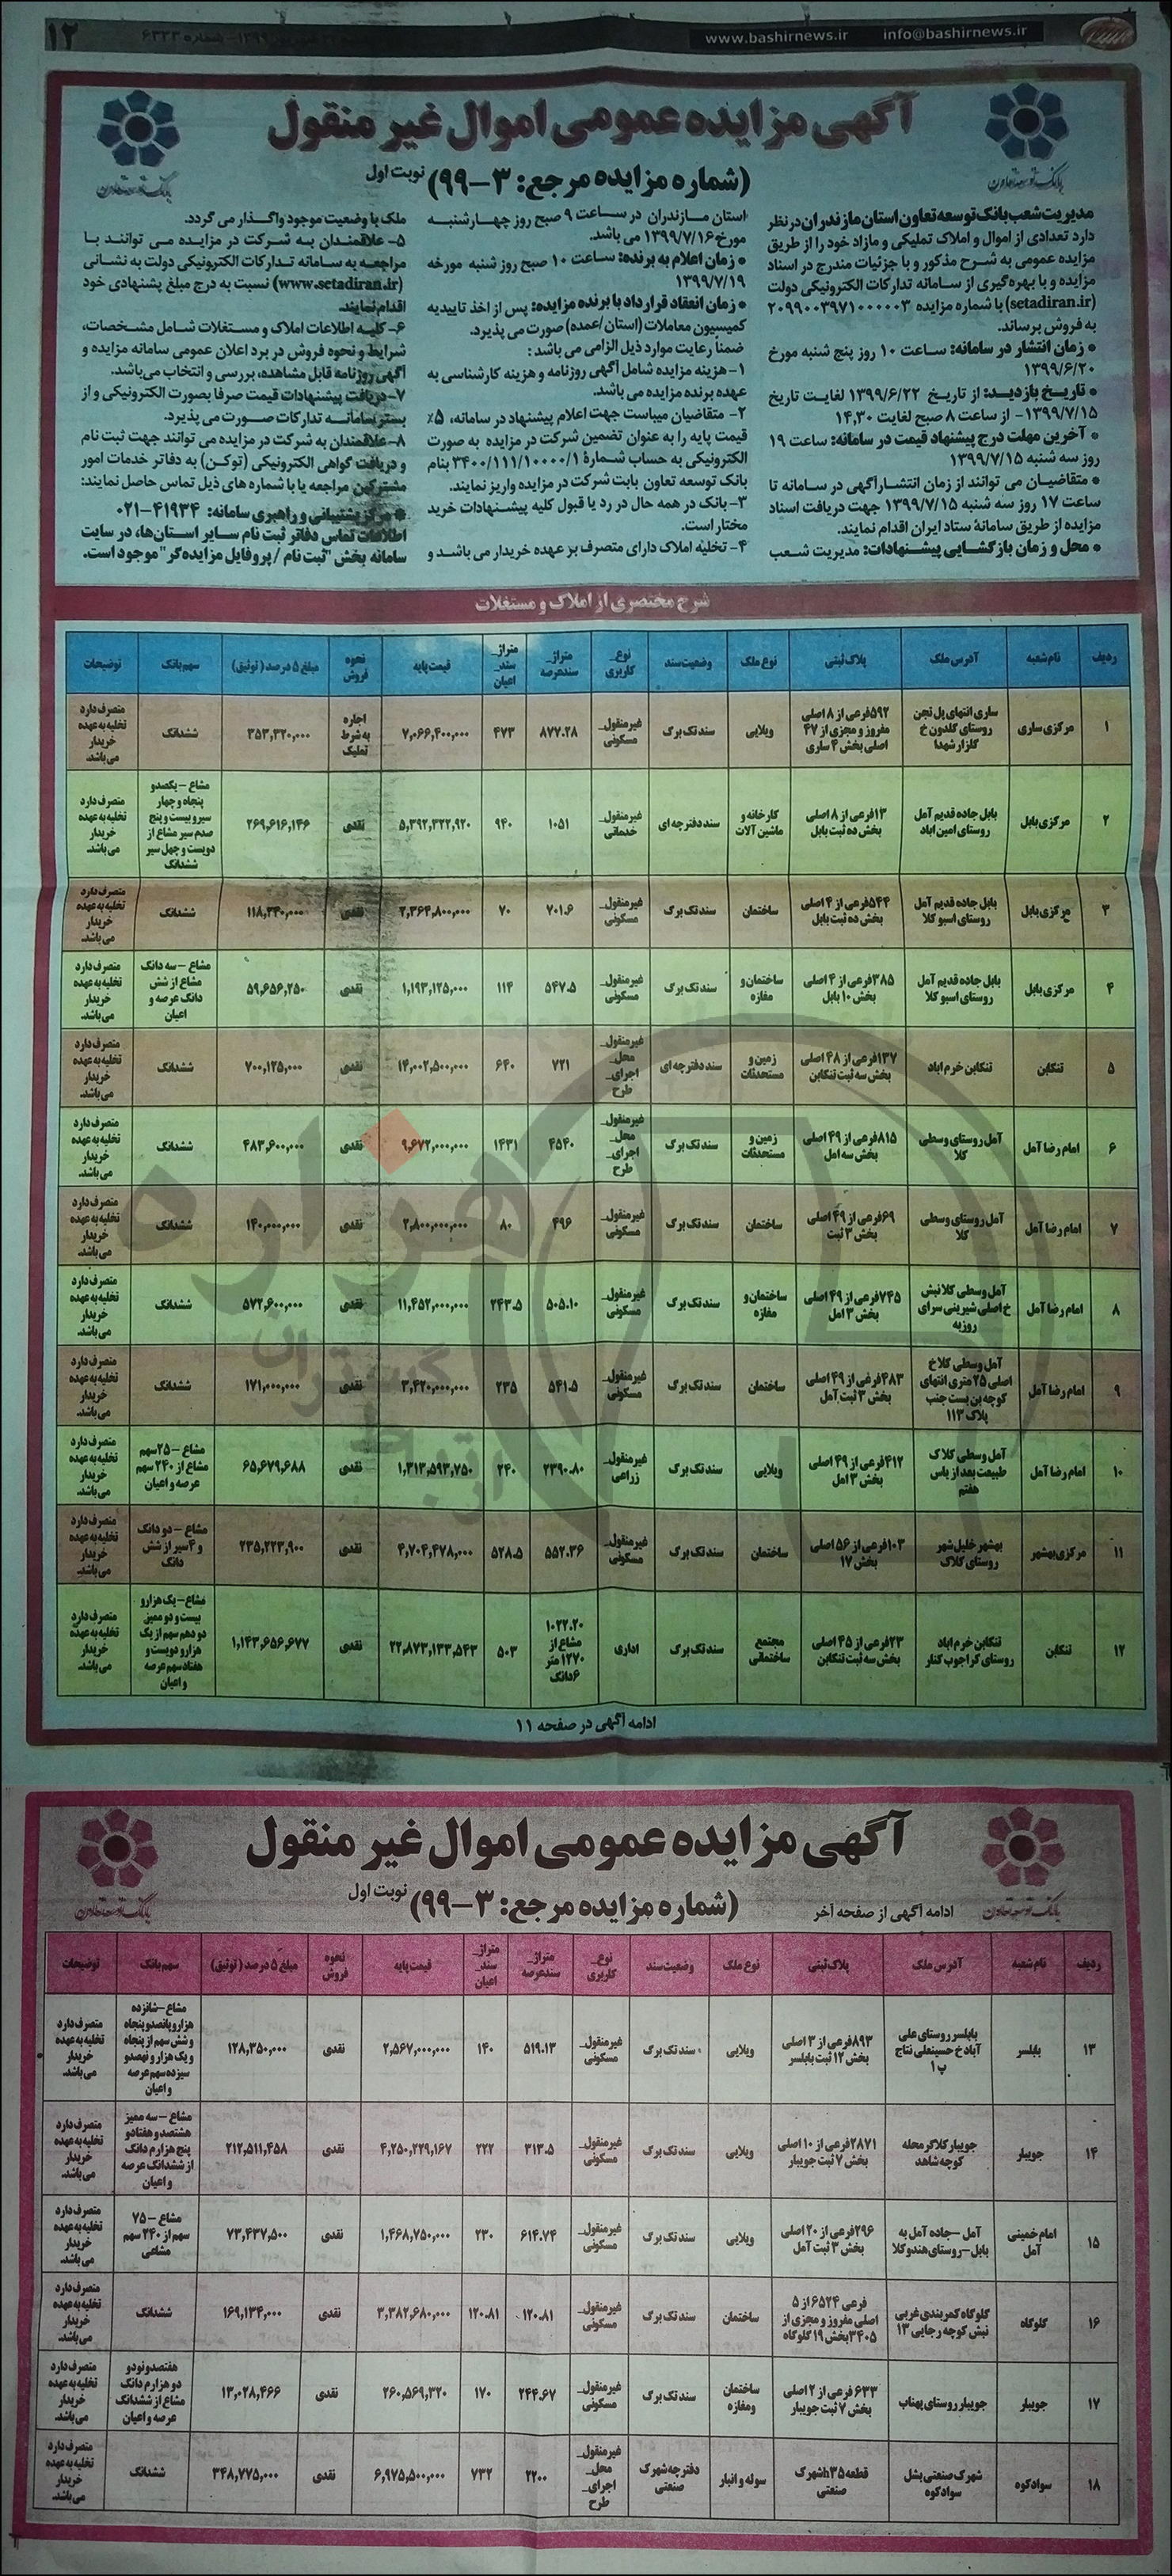 ۱۲
www.bashirnews.ir info@bashirnews.ir
آگهی مزایده عمومی اموال غیر منقول
(شماره مزایده مرجع: ۳-۹۹) نوبت اول
بانک توسعه تعاون
مدیریت شعب بانک توسعه تعاون استان مازندران در نظر
دارد تعدادی از اموال و املاک تملیکی و مازاد خود را از طریق
مزایده عمومی به شرح مذکور و با جزئیات مندرج در اسناد
مزایده و با بهره‌گیری از سامانه تدارکات الکترونیکی دولت
(setadiran.ir) با شماره مزایده ۲۰۹۹۰۰۳۹۷۱۰۰۰۰۰۳
به فروش برساند.
* زمان انتشار در سامانه: ساعت ۱۰ روز پنج شنبه مورخ
۱۳۹۹/۶/۲۰
* تاریخ بازدید: از تاریخ ۱۳۹۹/۶/۲۲ لغایت تاریخ
۱۳۹۹/۷/۱۵- از ساعت ۸ صبح لغایت ۱۴,۳۰
* آخرین مهلت درج پیشنهاد قیمت در سامانه: ساعت ۱۹
روز سه شنبه ۱۳۹۹/۷/۱۵
* متقاضیان می توانند از زمان انتشار آگهی در سامانه تا
ساعت ۱۷ روز سه شنبه ۱۳۹۹/۷/۱۵ جهت دریافت اسناد
مزایده از طریق سامانهٔ ستاد ایران اقدام نمایند.
* محل و زمان بازگشایی پیشنهادات: مدیریت شعب
استان مازندران در ساعت ۹ صبح روز چهارشنبه
مورخ ۱۳۹۹/۷/۱۶ می باشد.
* زمان اعلام به برنده: ساعت ۱۰ صبح روز شنبه مورخه
۱۳۹۹/۷/۱۹
* زمان انعقاد قرارداد با برنده مزایده: پس از اخذ تاییدیه
کمیسیون معاملات (استان/عمده) صورت می پذیرد.
ضمنا رعایت موارد ذیل الزامی می باشد:
۱- هزینه مزایده شامل آگهی روزنامه و هزینه کارشناسی به
عهده برنده مزایده می باشد.
۲- متقاضیان میبایست جهت اعلام پیشنهاد در سامانه، ۵٪
قیمت پایه را به عنوان تضمین شرکت در مزایده به صورت
الکترونیکی به حساب شمارهٔ ۳۴۰۰/۱۱۱/۱۰۰۰۰/۱ بنام
بانک توسعه تعاون بابت شرکت در مزایده واریز نمایند.
۳- بانک در همه حال در رد یا قبول کلیه پیشنهادات خرید
مختار است.
۴- تخلیه املاک دارای متصرف بر عهده خریدار می باشد و
ملک با وضعیت موجود واگذار می گردد.
۵- علاقمندان به شرکت در مزایده می توانند با
مراجعه به سامانه تدارکات الکترونیکی دولت به نشانی
(www.setadiran.ir) نسبت به درج مبلغ پشنهادی خود
اقدام نمایند.
۶- کلیه اطلاعات املاک و مستغلات شامل مشخصات،
شرایط و نحوه فروش در برد اعلان عمومی سامانه مزایده و
آگهی روزنامه قابل مشاهده، بررسی و انتخاب می‌باشد.
۷- دریافت پیشنهادات قیمت صرفا بصورت الکترونیکی و از
بستر سامانه تدارکات صورت می پذیرد.
۸- علاقمندان به شرکت در مزایده می توانند جهت ثبت نام
و دریافت گواهی الکترونیکی (توکن) به دفاتر خدمات امور
مشترکین مراجعه یا با شماره های ذیل تماس حاصل نمایند:
* مرکز پشتیبانی و راهبری سامانه: ۴۱۹۳۴-۰۲۱
اطلاعات تماس دفاتر ثبت نام سایر استان‌ها، در سایت
سامانه بخش "ثبت نام / پروفایل مزایده‌گر" موجود است.
شرح مختصری از املاک و مستغلات
ردیف نام شعبه آدرس ملک پلاک ثبتی نوع ملک وضعیت سند نوع_کاربری متراژ_سند عرصه متراژ_سند_اعیان قیمت پایه نحوه فروش مبلغ ۵ درصد (توثیق) سهم بانک توضیحات
۱ مرکزی ساری ساری انتهای پل تجن روستای گلدون خ گلزار شهدا ۵۹۲فرعی از ۸ اصلی مفروز و مجزی از ۴۷ اصلی بخش ۴ ساری ویلایی سند تک برگ غیرمنقول_مسکونی ۸۷۷.۲۸ ۴۷۳ ۷,۰۶۶,۴۰۰,۰۰۰ اجاره به شرط تملیک ۳۵۳,۳۲۰,۰۰۰ ششدانگ متصرف دارد تخلیه به عهده خریدار می‌باشد.
۲ مرکزی بابل بابل جاده قدیم آمل روستای امین اباد ۱۳فرعی از ۸ اصلی بخش ده ثبت بابل کارخانه و ماشین آلات سند دفترچه ای غیرمنقول_خدماتی ۱۰۵۱ ۹۴۰ ۵,۳۹۲,۳۲۲,۹۲۰ نقدی ۲۶۹,۶۱۶,۱۴۶ مشاع – یکصد و پنجاه و چهار سیر و بیست و پنج صدم سیر مشاع از دویست و چهل سیر ششدانگ متصرف دارد تخلیه به عهده خریدار می‌باشد.
۳ مرکزی بابل بابل جاده قدیم آمل روستای اسبو کلا ۵۴۴فرعی از ۴ اصلی بخش ده ثبت بابل ساختمان سند تک برگ غیرمنقول_مسکونی ۷۰۱.۶ ۷۰ ۲,۳۶۴,۸۰۰,۰۰۰ نقدی ۱۱۸,۲۴۰,۰۰۰ ششدانگ متصرف دارد تخلیه به عهده خریدار می‌باشد.
۴ مرکزی بابل بابل جاده قدیم آمل روستای اسبو کلا ۳۸۵فرعی از ۴ اصلی بخش ۱۰ بابل ساختمان و مغازه سند تک برگ غیرمنقول_مسکونی ۵۴۷.۵ ۱۱۴ ۱,۱۹۳,۱۲۵,۰۰۰ نقدی ۵۹,۶۵۶,۲۵۰ مشاع – سه دانگ مشاع از شش دانگ عرصه و اعیان متصرف دارد تخلیه به عهده خریدار می‌باشد.
۵ تنکابن تنکابن خرم اباد ۱۳۷فرعی از ۴۸ اصلی بخش سه ثبت تنکابن زمین و مستحدثات سند دفترچه ای غیرمنقول_محل_اجرای_طرح ۷۲۱ ۶۴۰ ۱۴,۰۰۲,۵۰۰,۰۰۰ نقدی ۷۰۰,۱۲۵,۰۰۰ ششدانگ متصرف دارد تخلیه به عهده خریدار می‌باشد.
۶ امام رضا آمل آمل روستای وسطی کلا ۸۱۵فرعی از ۴۹ اصلی بخش سه امل زمین و مستحدثات سند تک برگ غیرمنقول_محل_اجرای_طرح ۴۵۴۰ ۱۴۳۱ ۹,۶۷۲,۰۰۰,۰۰۰ نقدی ۴۸۳,۶۰۰,۰۰۰ ششدانگ متصرف دارد تخلیه به عهده خریدار می‌باشد.
۷ امام رضا آمل آمل روستای وسطی کلا ۶۹فرعی از ۴۹ اصلی بخش ۳ ثبت ساختمان سند تک برگ غیرمنقول_مسکونی ۴۹۶ ۸۰ ۲,۸۰۰,۰۰۰,۰۰۰ نقدی ۱۴۰,۰۰۰,۰۰۰ ششدانگ متصرف دارد تخلیه به عهده خریدار می‌باشد.
۸ امام رضا آمل آمل وسطی کلا نبش خ اصلی شیرینی سرای روزبه ۷۴۵فرعی از ۴۹ اصلی بخش ۳ امل ساختمان و مغازه سند تک برگ غیرمنقول_مسکونی ۵۰۵.۱۰ ۲۴۳.۵ ۱۱,۴۵۲,۰۰۰,۰۰۰ نقدی ۵۷۲,۶۰۰,۰۰۰ ششدانگ متصرف دارد تخلیه به عهده خریدار می‌باشد.
۹ امام رضا آمل آمل وسطی کلا خ اصلی ۲۵ متری انتهای کوچه بن بست جنب پلاک ۱۱۳ ۴۸۳فرعی از ۴۹ اصلی بخش ۳ ثبت آمل ساختمان سند تک برگ غیرمنقول_مسکونی ۵۴۱.۵ ۲۳۵ ۳,۴۲۰,۰۰۰,۰۰۰ نقدی ۱۷۱,۰۰۰,۰۰۰ ششدانگ متصرف دارد تخلیه به عهده خریدار می‌باشد.
۱۰ امام رضا آمل آمل وسطی کلا ک طبیعت بعد از یاس هفتم ۴۱۲فرعی از ۴۹ اصلی بخش ۳ امل ویلایی سند تک برگ غیرمنقول_زراعی ۲۳۹۰.۸۰ ۲۴۰ ۱,۳۱۳,۵۹۳,۷۵۰ نقدی ۶۵,۶۷۹,۶۸۸ مشاع – ۲۵سهم مشاع از ۲۴۰ سهم عرصه و اعیان متصرف دارد تخلیه به عهده خریدار می‌باشد.
۱۱ مرکزی بهشهر بهشهر خلیل شهر روستای کلاک ۱۰۳فرعی از ۵۶ اصلی بخش ۱۷ ساختمان سند تک برگ غیرمنقول_مسکونی ۵۵۲.۳۶ ۵۲۸.۵ ۴,۷۰۴,۴۷۸,۰۰۰ نقدی ۲۳۵,۲۲۳,۹۰۰ مشاع – دو دانگ و ۴ سیر از شش دانگ متصرف دارد تخلیه به عهده خریدار می‌باشد.
۱۲ تنکابن تنکابن خرم اباد روستای کراجوب کنار ۲۳فرعی از ۴۵ اصلی بخش سه ثبت تنکابن مجتمع ساختمانی سند تک برگ اداری ۱۰۲۲.۲۰ مشاع از ۱۲۷۰ متر ۶دانگ ۵۰۳ ۲۲,۸۷۳,۱۳۳,۵۴۳ نقدی ۱,۱۴۳,۶۵۶,۶۷۷ مشاع – یک هزار و بیست و دو ممیز دو دهم سهم از یک هزار و دویست و هفتاد سهم عرصه و اعیان متصرف دارد تخلیه به عهده خریدار می‌باشد.
ادامه آگهی در صفحه ۱۱
هزاره
آگهی مزایده عمومی اموال غیر منقول
(شماره مزایده مرجع: ۳-۹۹) نوبت اول
ادامه آگهی از صفحه آخر
بانک توسعه تعاون
ردیف نام شعبه آدرس ملک پلاک ثبتی نوع ملک وضعیت سند نوع_کاربری متراژ_سند عرصه متراژ_سند_اعیان قیمت پایه نحوه فروش مبلغ ۵ درصد (توثیق) سهم بانک توضیحات
۱۳ بابلسر بابلسر روستای علی آباد خ حسینعلی نتاج پ ۱ ۸۹۳فرعی از ۳ اصلی بخش ۱۲ ثبت بابلسر ویلایی سند تک برگ غیرمنقول_مسکونی ۵۱۹.۱۳ ۱۴۰ ۲,۵۶۷,۰۰۰,۰۰۰ نقدی ۱۲۸,۳۵۰,۰۰۰ مشاع – شانزده هزار و پانصد و پنجاه و شش سهم از پنجاه و یک هزار و نهصد و سیزده سهم عرصه و اعیان متصرف دارد تخلیه به عهده خریدار می‌باشد.
۱۴ جویبار جویبار کلاگر محله کوچه شاهد ۲۸۷۱فرعی از ۱۰ اصلی بخش ۷ ثبت جویبار ویلایی سند تک برگ غیرمنقول_مسکونی ۳۱۳.۵ ۲۲۲ ۴,۲۵۰,۲۲۹,۱۶۷ نقدی ۲۱۲,۵۱۱,۴۵۸ مشاع – سه ممیز هشتصد و هفتاد و پنج هزارم دانگ از ششدانگ عرصه و اعیان متصرف دارد تخلیه به عهده خریدار می‌باشد.
۱۵ امام خمینی آمل آمل – جاده آمل به بابل – روستای هندوکلا ۲۹۶فرعی از ۲۰ اصلی بخش ۳ ثبت آمل ویلایی سند تک برگ غیرمنقول_مسکونی ۶۱۴.۷۴ ۲۳۰ ۱,۴۶۸,۷۵۰,۰۰۰ نقدی ۷۳,۴۳۷,۵۰۰ مشاع – ۷۵ سهم از ۲۴۰ سهم مشاعی متصرف دارد تخلیه به عهده خریدار می‌باشد.
۱۶ گلوگاه گلوگاه کمربندی غربی نبش کوچه رجایی ۱۳ فرعی ۶۵۲۴ از ۵ اصلی مفروز و مجزی از ۳۴۰۵ بخش ۱۹ گلوگاه ساختمان سند تک برگ غیرمنقول_مسکونی ۱۲۰.۸۱ ۱۲۰.۸۱ ۳,۳۸۲,۶۸۰,۰۰۰ نقدی ۱۶۹,۱۳۴,۰۰۰ ششدانگ متصرف دارد تخلیه به عهده خریدار می‌باشد.
۱۷ جویبار جویبار روستای پهناب ۶۳۳ فرعی از ۲ اصلی بخش ۷ ثبت جویبار ساختمان ومغازه سند تک برگ غیرمنقول_مسکونی ۲۴۴.۶۷ ۱۷۰ ۲۶۰,۵۶۹,۳۲۰ نقدی ۱۳,۰۲۸,۴۶۶ هفتصد و نود و دو هزارم دانگ مشاع از ششدانگ عرصه و اعیان متصرف دارد تخلیه به عهده خریدار می‌باشد.
۱۸ سوادکوه شهرک صنعتی بشل سوادکوه قطعه h۳۵ شهرک صنعتی سوله و انبار دفترچه شهرک صنعتی غیرمنقول_محل_اجرای_طرح ۲۲۰۰ ۷۳۲ ۶,۹۷۵,۵۰۰,۰۰۰ نقدی ۳۴۸,۷۷۵,۰۰۰ ششدانگ متصرف دارد تخلیه به عهده خریدار می‌باشد.